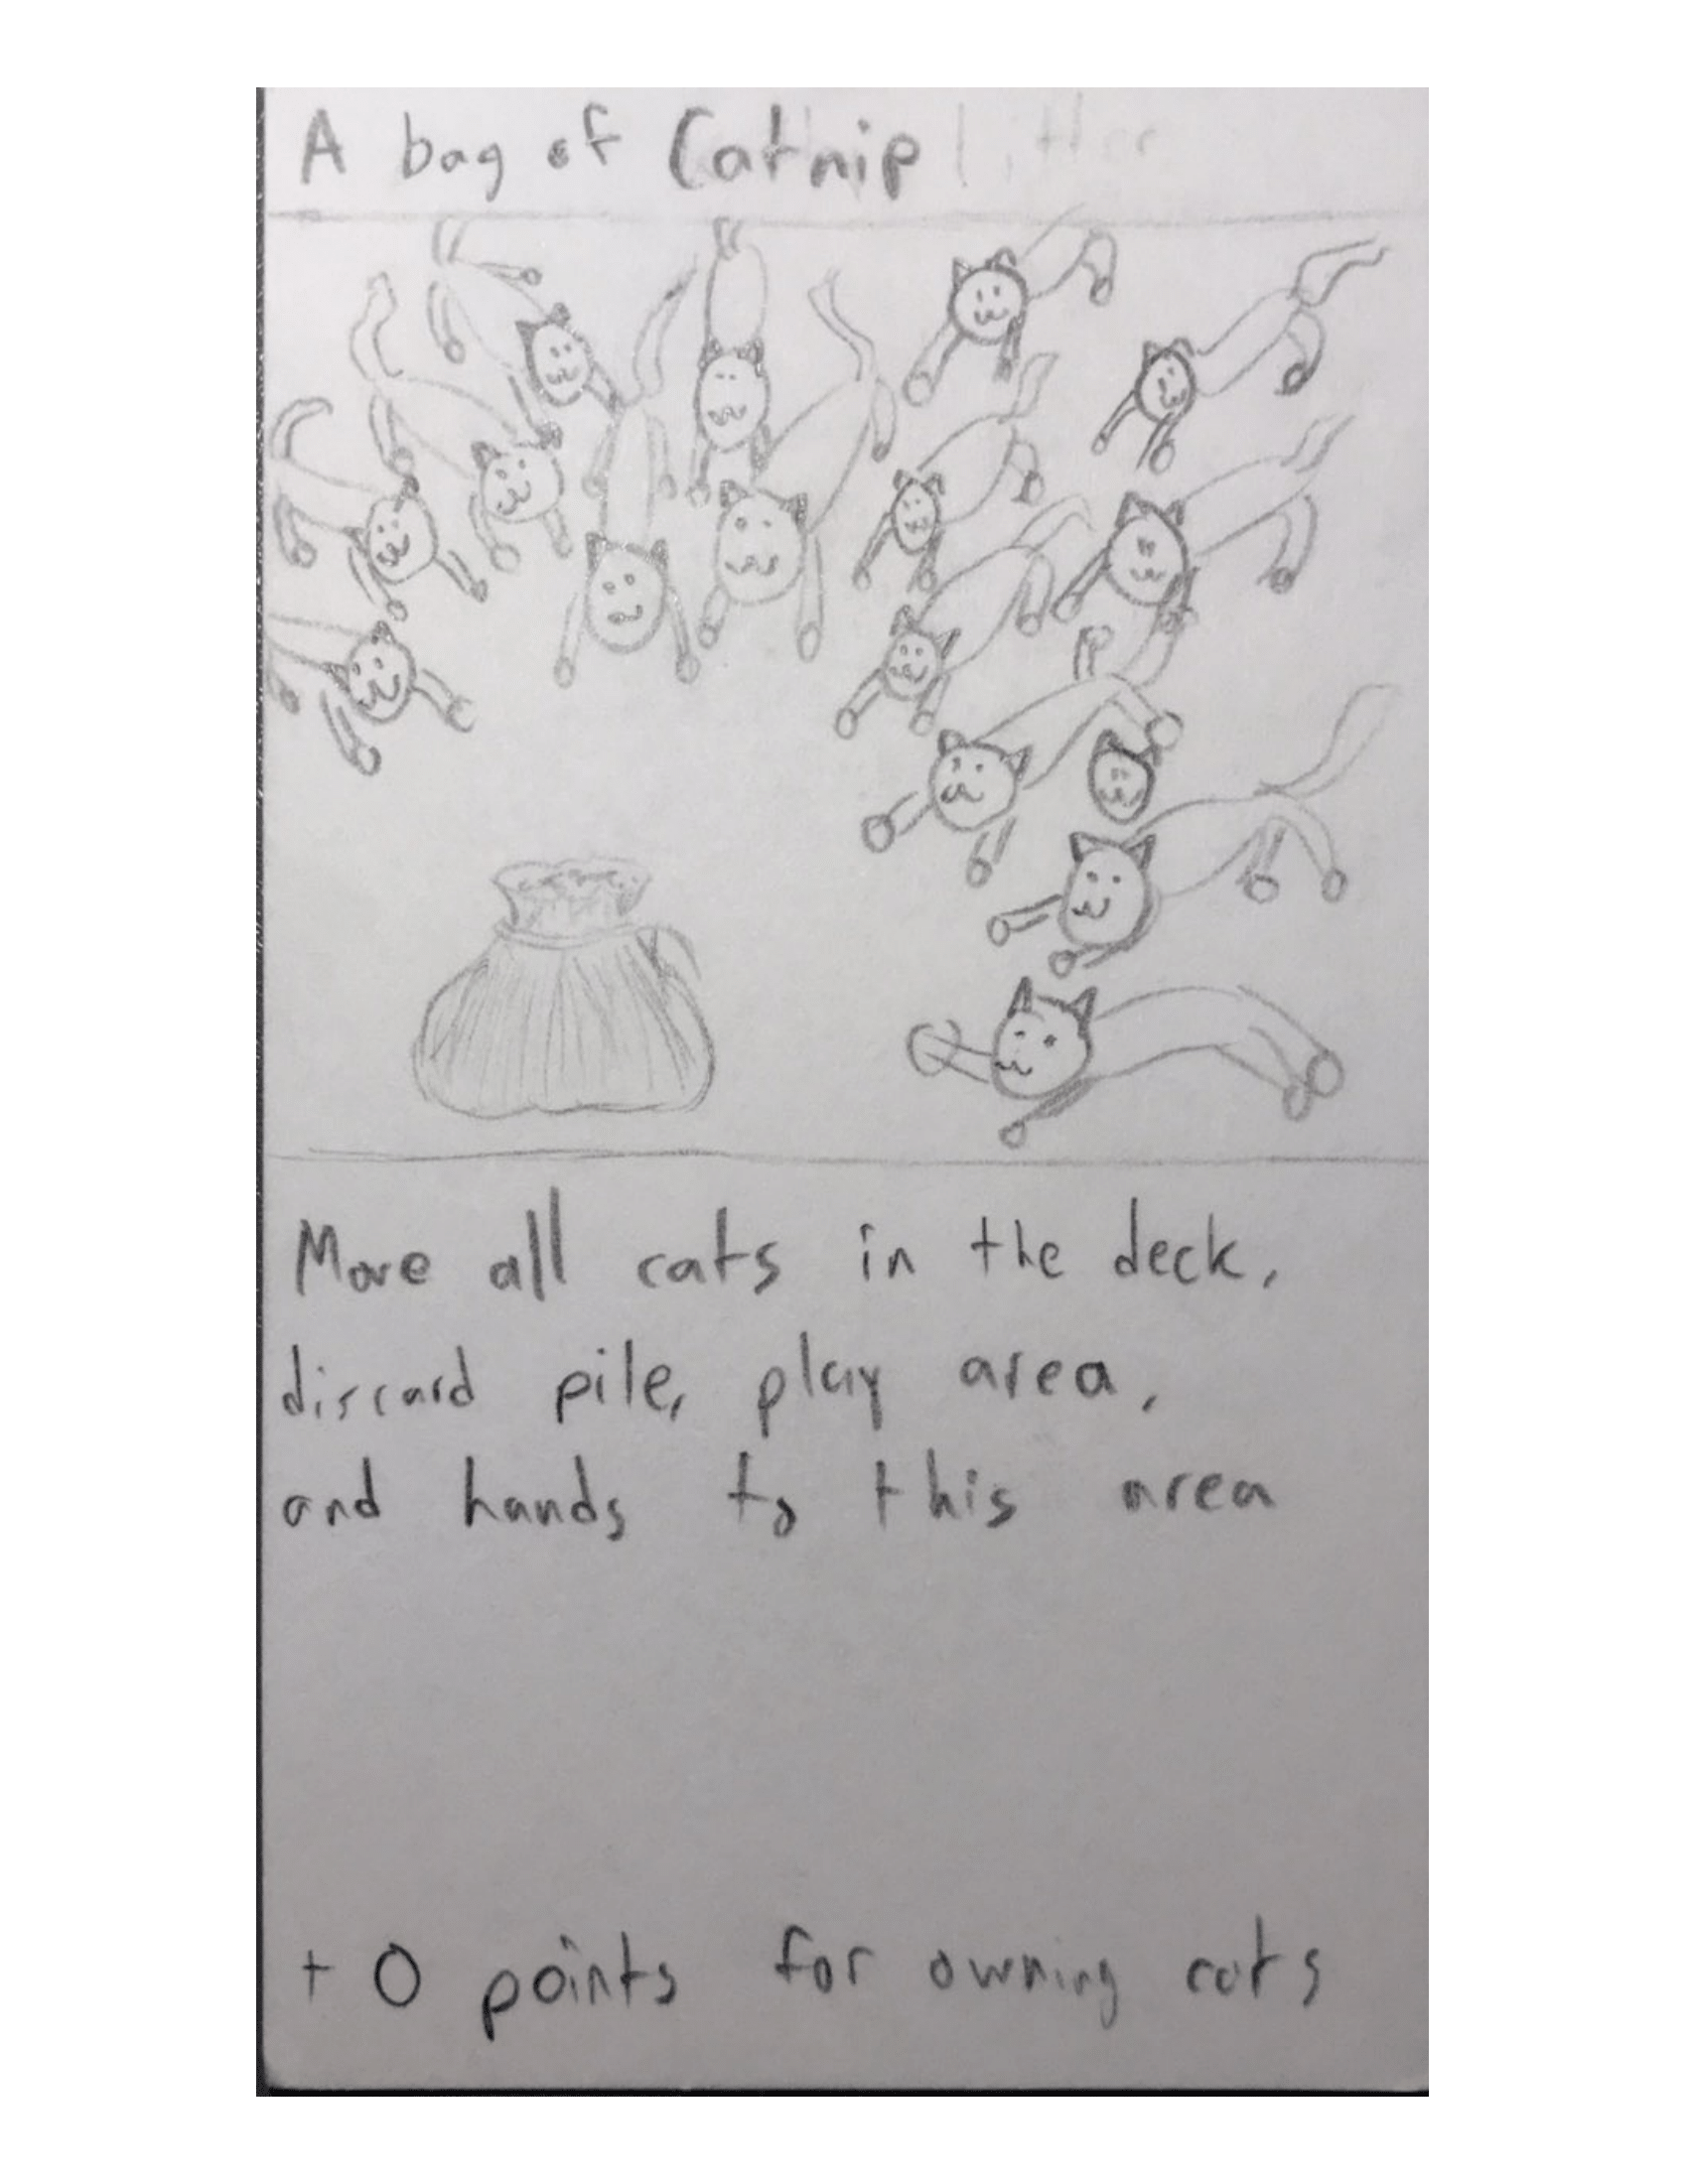 A bag of Catnip litter
Move all cats in the deck,
discard pile, play area,
and hands to this area
+ 0 points for owning cats